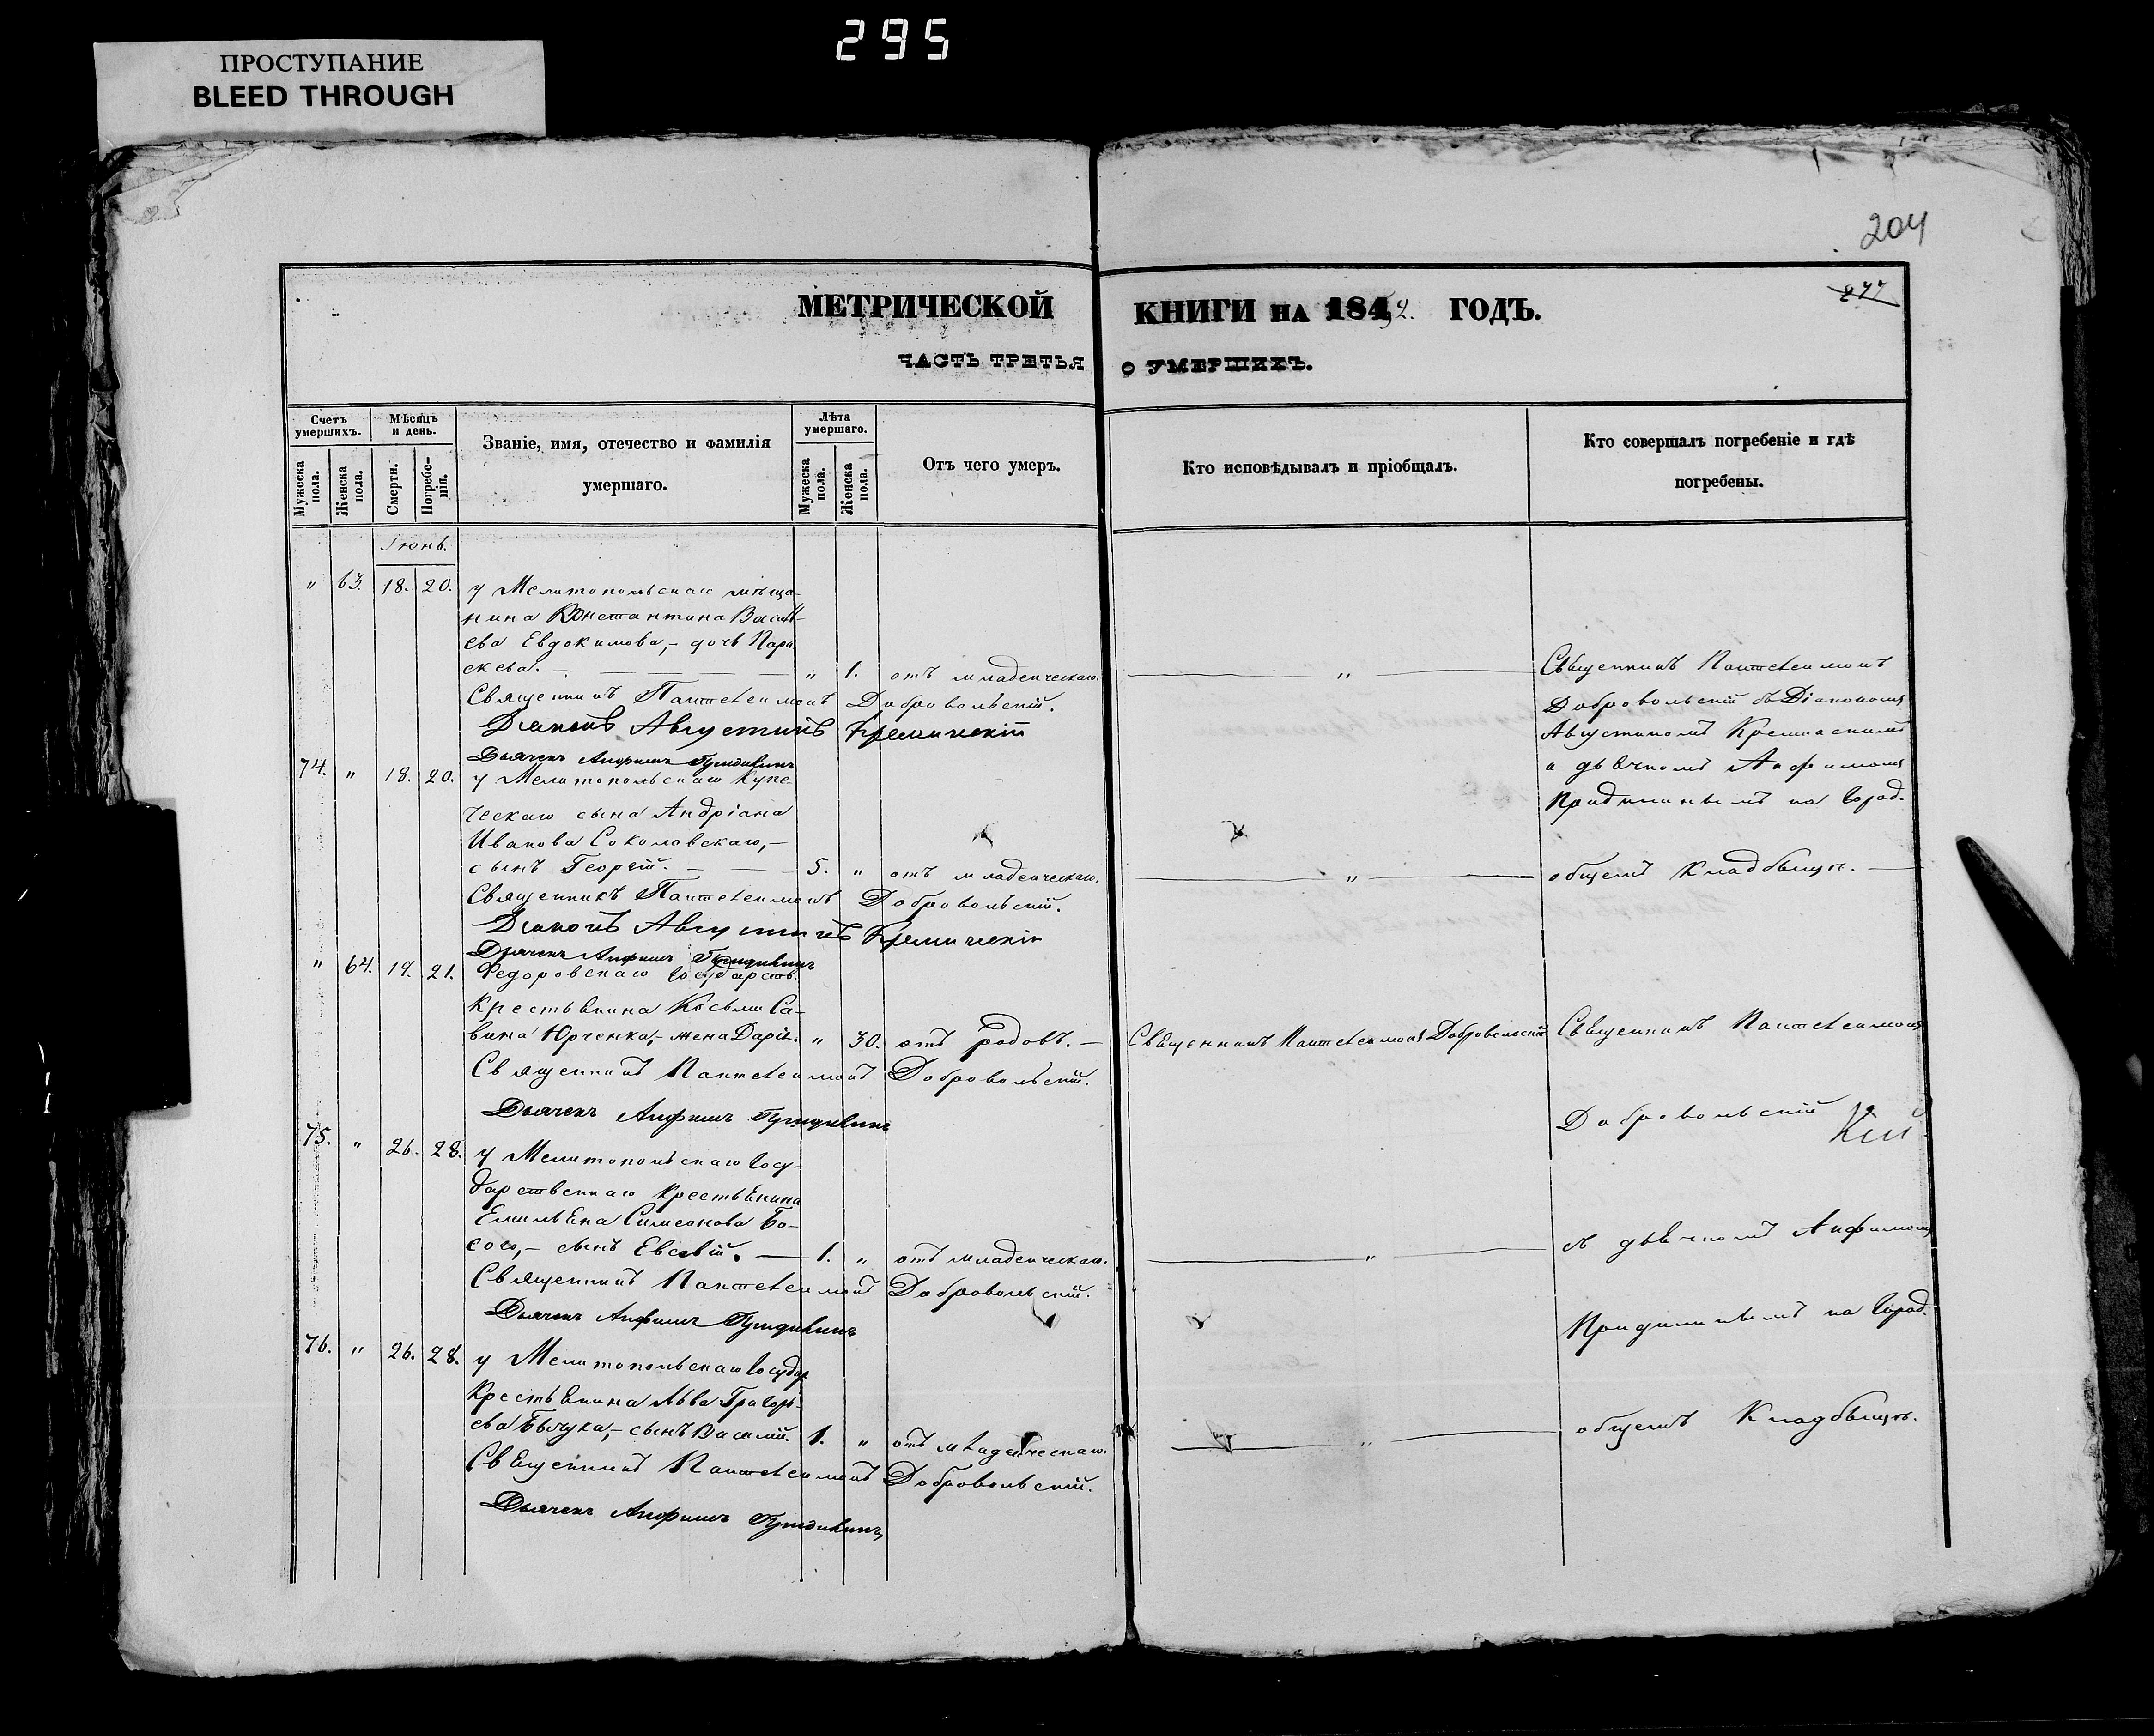 295
ПРОСТУПАНИЕ
BLEED THROUGH
204
277
МЕТРИЧЕСКОЙ КНИГИ НА 1852. ГОДЪ.
ЧАСТЬ ТРЕТЬЯ О УМЕРШИХЪ.
Счетъ умершихъ.
Мужеска пола.
Женска пола.
Мѣсяцъ и день.
Смерти.
Погребенія.
Званіе, имя, отечество и фамилія умершаго.
Лѣта умершаго.
Мужеска пола.
Женска пола.
Отъ чего умеръ.
Кто исповѣдывалъ и пріобщалъ.
Кто совершалъ погребеніе и гдѣ погребены.
Іюнь.
" 63. 18. 20. у Мелитопольскаго мѣща-
нина Константина Василь-
ева Евдокимова,- дочь Пара
скева. — " 1. отъ младенческаго. — " —
Священникъ Пантелеимонъ Добровольскій.
Діаконъ Августинъ
Дьячекъ Анфимъ
Священникъ Пантелеимонъ
Добровольскій съ Діакономъ
Августиномъ
и дьячкомъ Анфимомъ
на город.
общемъ кладбищѣ. —
74. " 18. 20. у Мелитопольскаго купе-
ческаго сына Андріана
Иванова Соколовскаго,-
сынъ Георгій. — 5. " отъ младенческаго. — " —
Священникъ Пантелеимонъ Добровольскій.
Діаконъ Августинъ
Дьячекъ Анфимъ
" 64. 19. 21. Федоровскаго государств.
крестьянина Косьмы Са-
вина Юрченка,- жена Дарія. " 30. отъ родовъ. — Священникъ Пантелеимонъ Добровольскій
Священникъ Пантелеимонъ Добровольскій.
Дьячекъ Анфимъ
Священникъ Пантелеимонъ
Добровольскій
съ дьячкомъ Анфимомъ
на город.
общемъ кладбищѣ.
75. " 26. 28. у Мелитопольскаго госу-
дарственнаго крестьянина
Емильяна Симеонова Бо-
сого,- сынъ Евсевій. — 1. " отъ младенческаго. — " —
Священникъ Пантелеимонъ Добровольскій.
Дьячекъ Анфимъ
76. " 26. 28. у Мелитопольскаго государ
крестьянина Льва Григорь-
ева Бычука,- сынъ Василій. 1. " отъ младенческаго. — " —
Священникъ Пантелеимонъ Добровольскій.
Дьячекъ Анфимъ